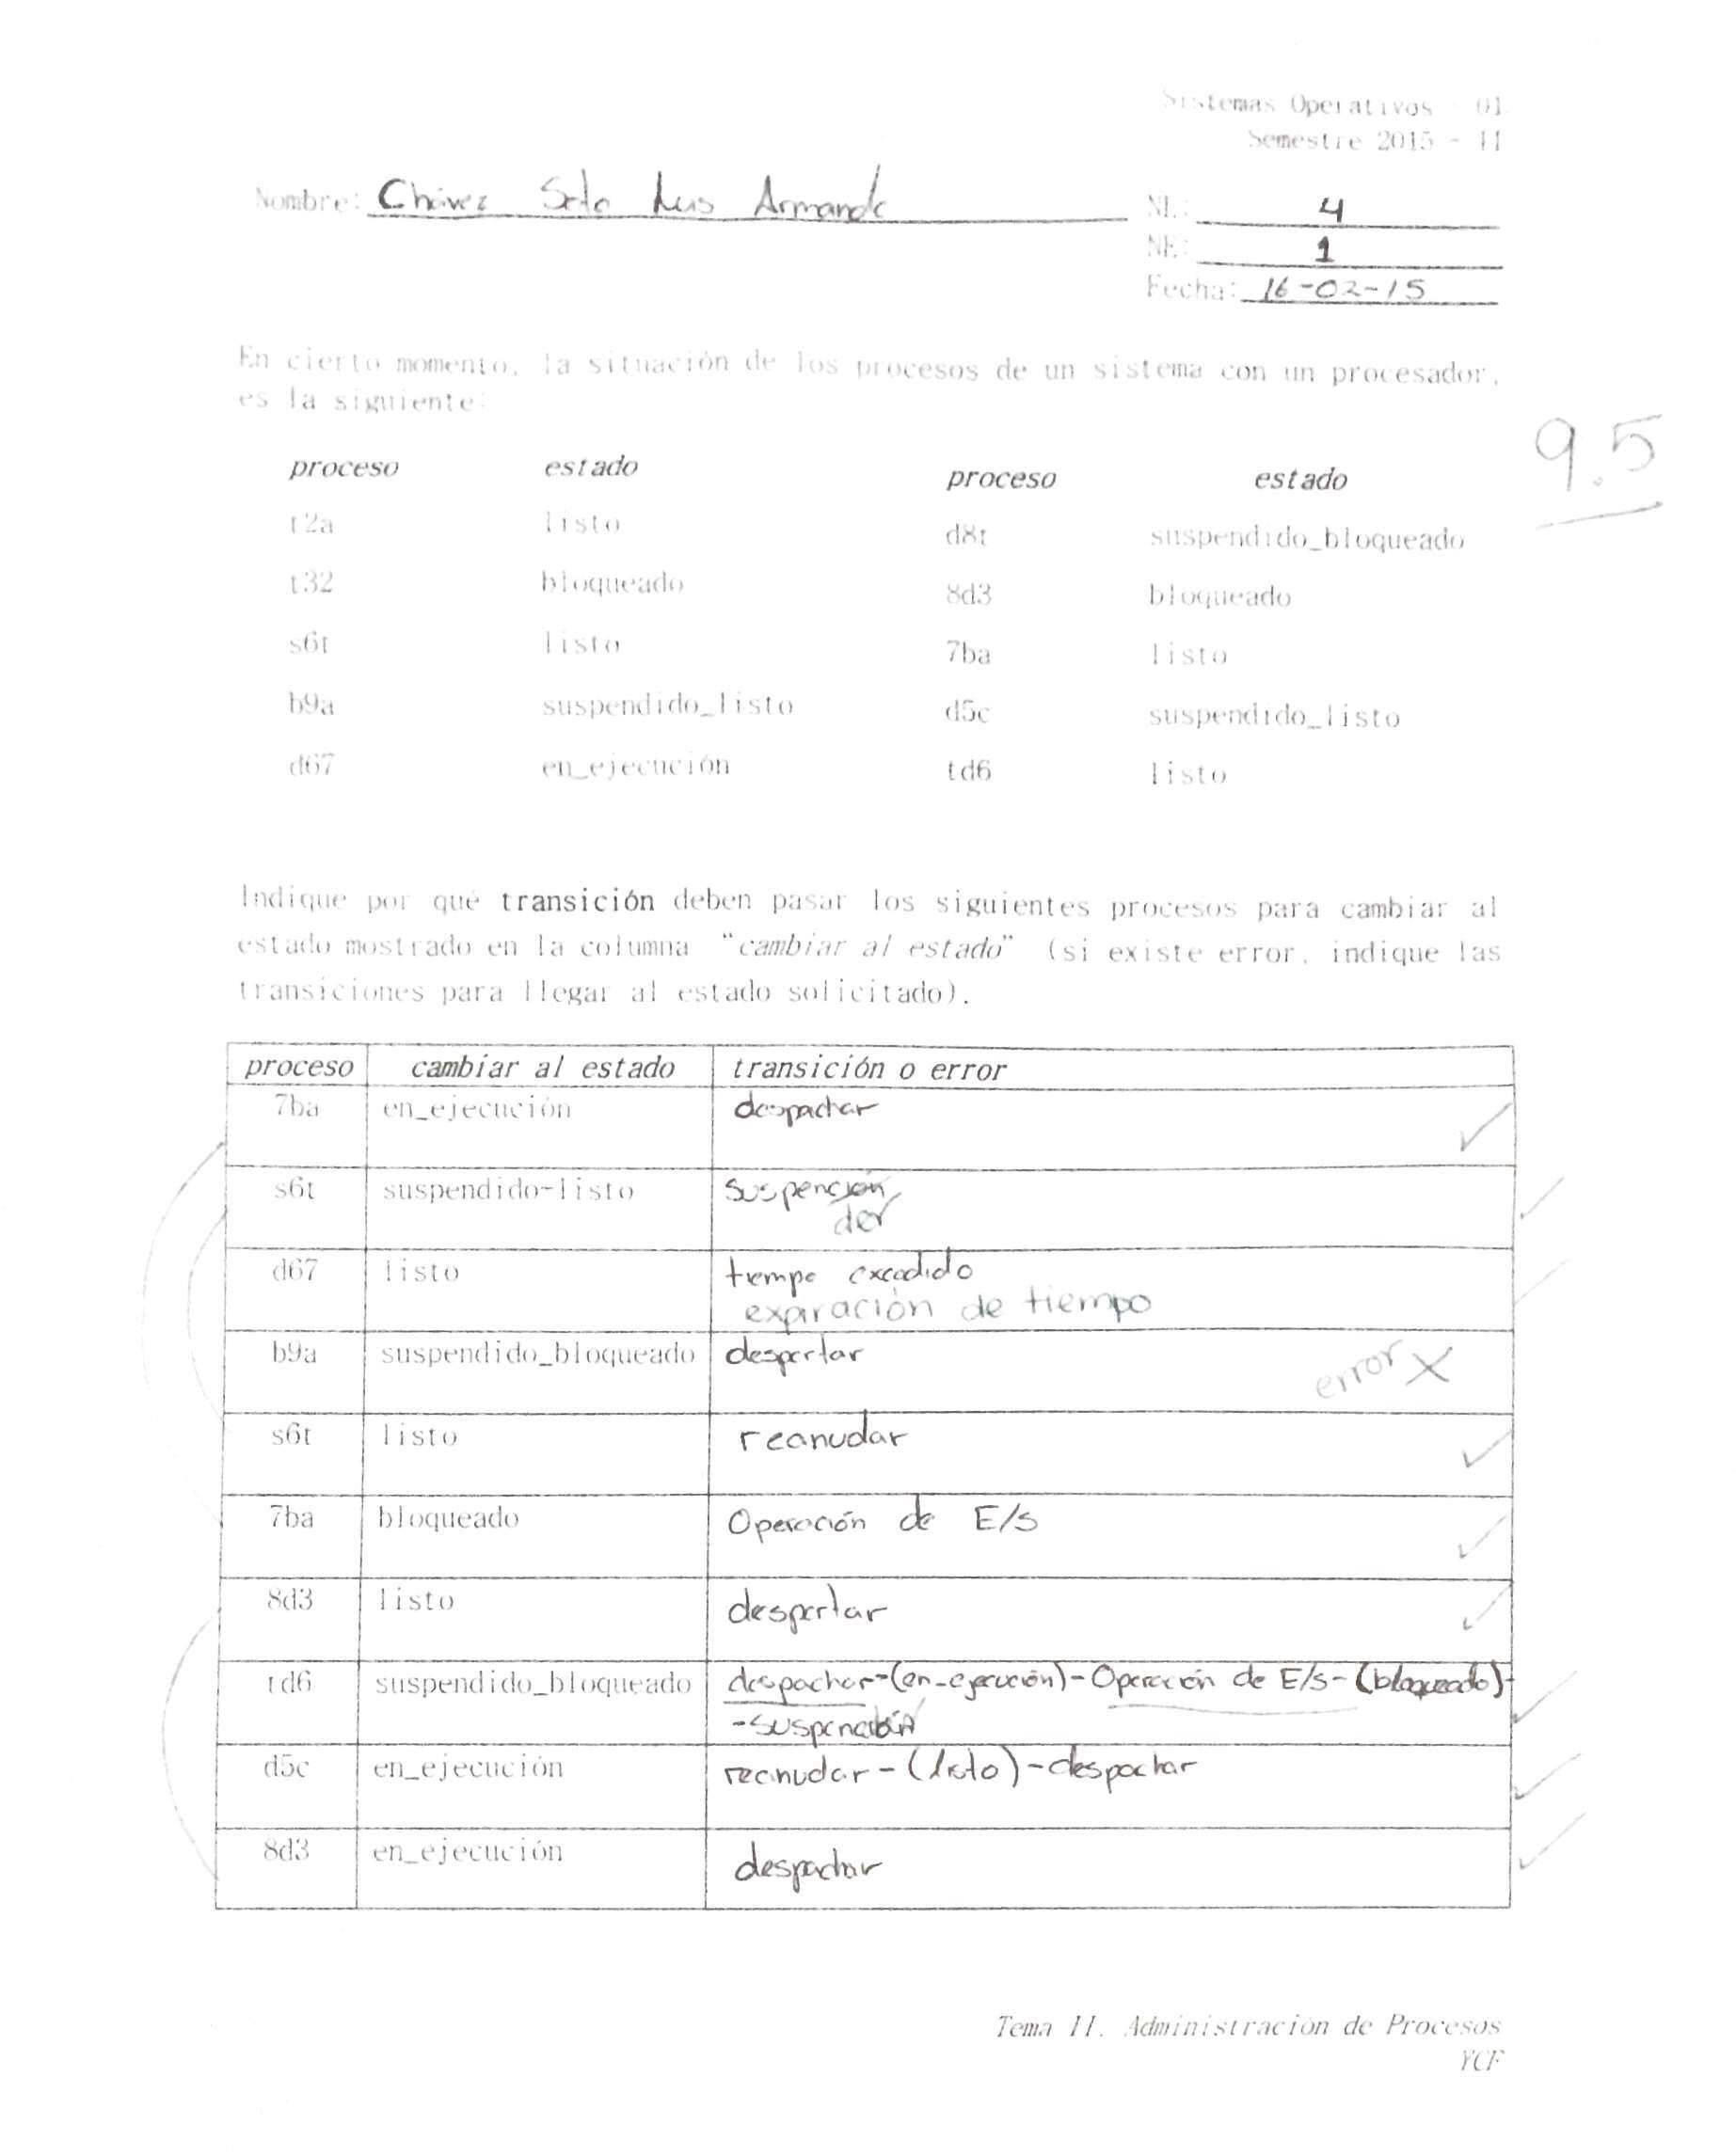 Sistemas Operativos - 01
Semestre 2015 - II
Nombre: Chávez Soto Luis Armando
NL: 4
NE: 1
Fecha: 16-02-15
En cierto momento, la situación de los procesos de un sistema con un procesador,
es la siguiente:
9.5
proceso estado proceso estado
t2a listo d8t suspendido_bloqueado
t32 bloqueado 8d3 bloqueado
s6t listo 7ba listo
b9a suspendido_listo d5c suspendido_listo
d67 en_ejecución td6 listo
Indique por qué transición deben pasar los siguientes procesos para cambiar al
estado mostrado en la columna "cambiar al estado" (si existe error, indique las
transiciones para llegar al estado solicitado).
proceso cambiar al estado transición o error
7ba en_ejecución despachar
s6t suspendido-listo suspención
der
d67 listo tiempo excedido
expiración de tiempo
b9a suspendido_bloqueado despertar error
s6t listo reanudar
7ba bloqueado Operación de E/S
8d3 listo despertar
td6 suspendido_bloqueado despachar-(en_ejecución)-Operación de E/S-(bloqueado)-
-suspención
d5c en_ejecución reanudar-(listo)-despachar
8d3 en_ejecución despachar
Tema II. Administración de Procesos
YCF